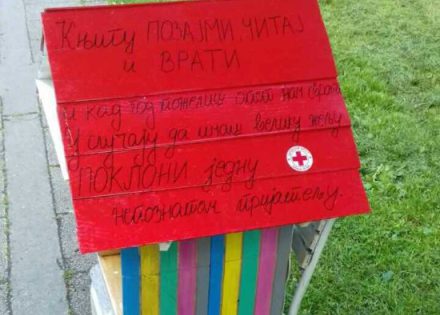 Књигу ПОЗАЈМИ, ЧИТАЈ
и ВРАТИ
и кад год пожелиш опет нам сврати
У случају да имаш велику жељу
ПОКЛОНИ једну
непознатом пријатељу.